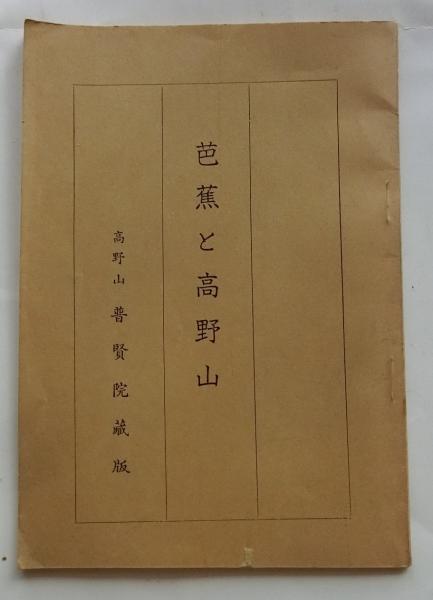 芭蕉と高野山
高野山 普賢院蔵版